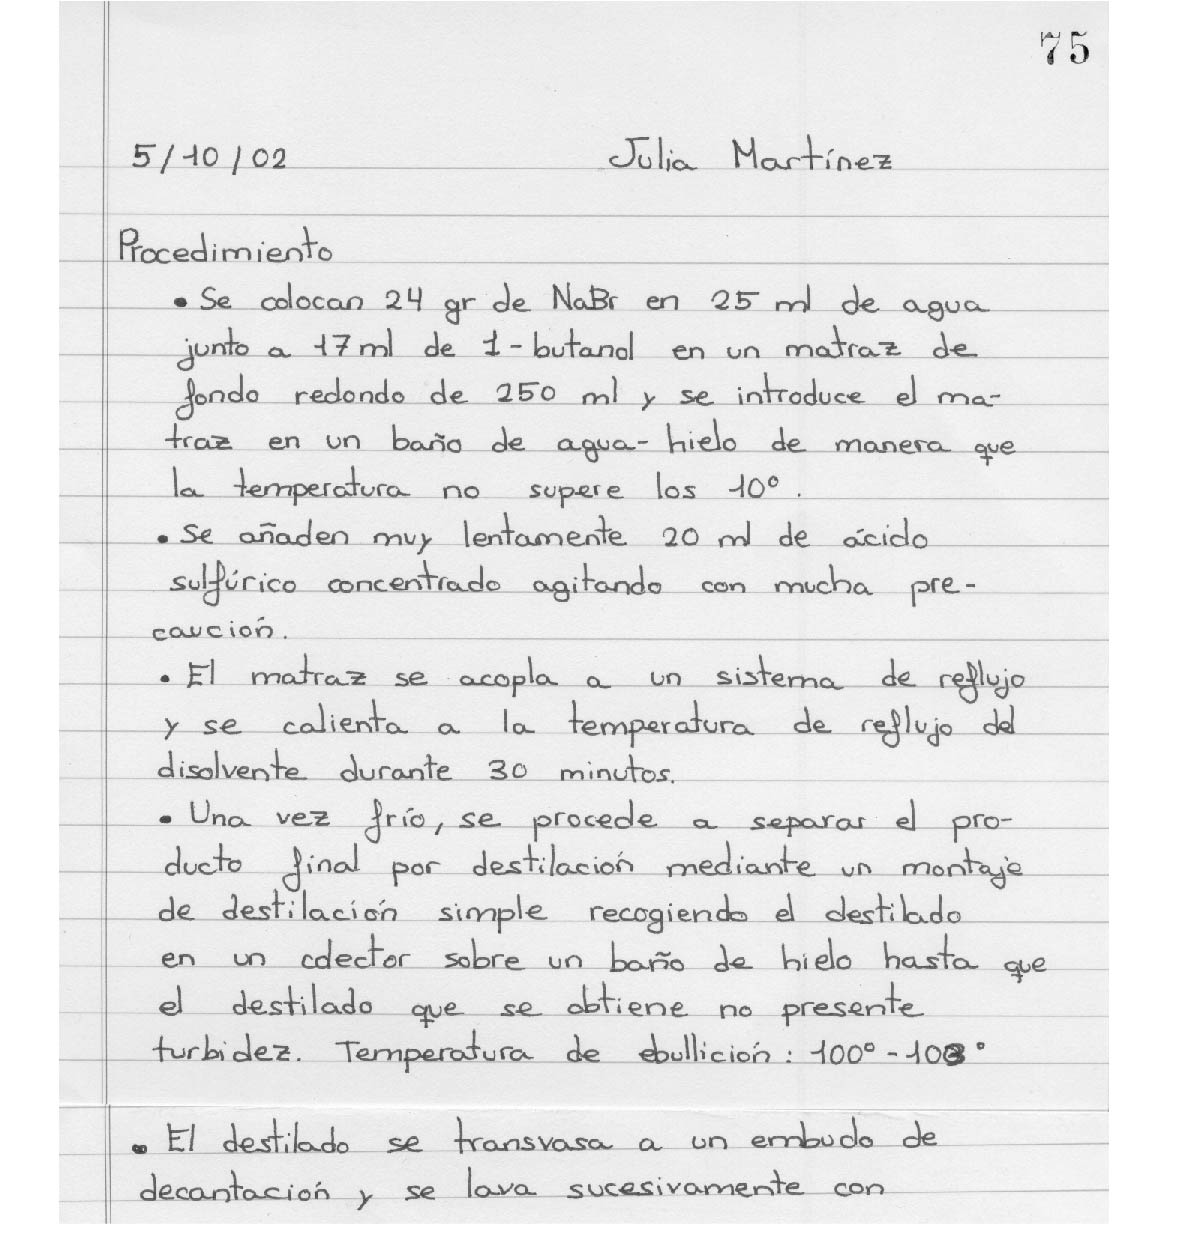 75
5/10/02 Julia Martínez
Procedimiento
• Se colocan 24 gr de NaBr en 25 ml de agua
junto a 17 ml de 1-butanol en un matraz de
fondo redondo de 250 ml y se introduce el ma-
traz en un baño de agua-hielo de manera que
la temperatura no supere los 10º.
• Se añaden muy lentamente 20 ml de ácido
sulfúrico concentrado agitando con mucha pre-
caución.
• El matraz se acopla a un sistema de reflujo
y se calienta a la temperatura de reflujo del
disolvente durante 30 minutos.
• Una vez frío, se procede a separar el pro-
ducto final por destilación mediante un montaje
de destilación simple recogiendo el destilado
en un colector sobre un baño de hielo hasta que
el destilado que se obtiene no presente
turbidez. Temperatura de ebullición: 100º-103º
• El destilado se transvasa a un embudo de
decantación y se lava sucesivamente con